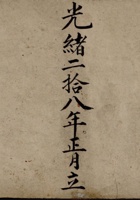 光緒二拾八年正月立